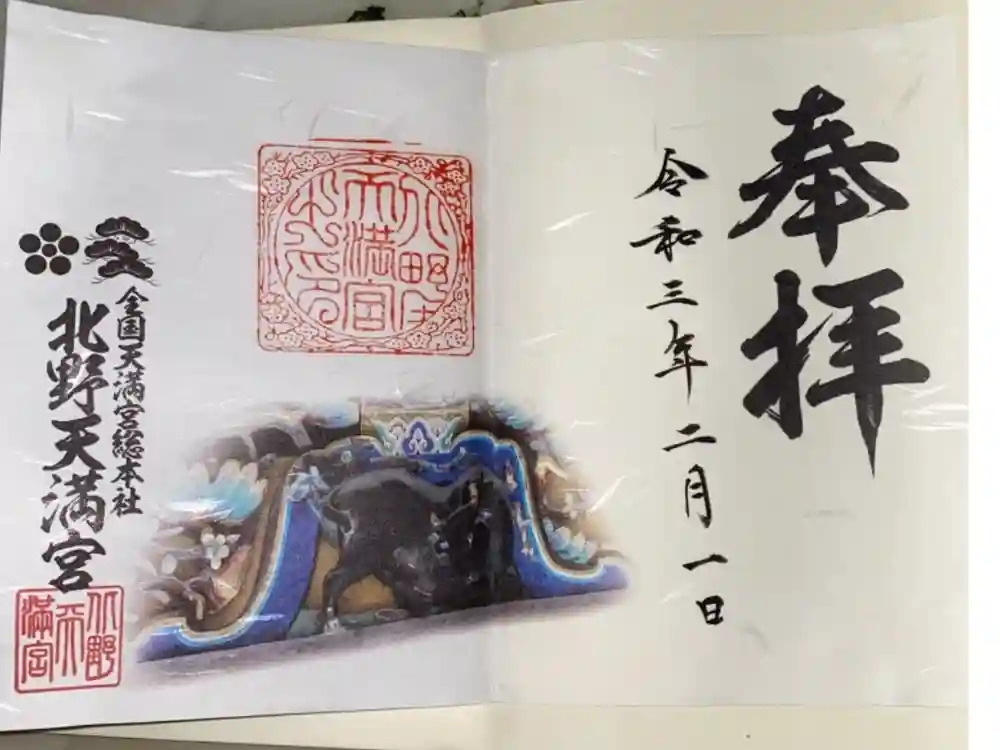 奉拝
令和三年二月一日
北野天満宮之印
全国天満宮総本社
北野天満宮
北野天満宮